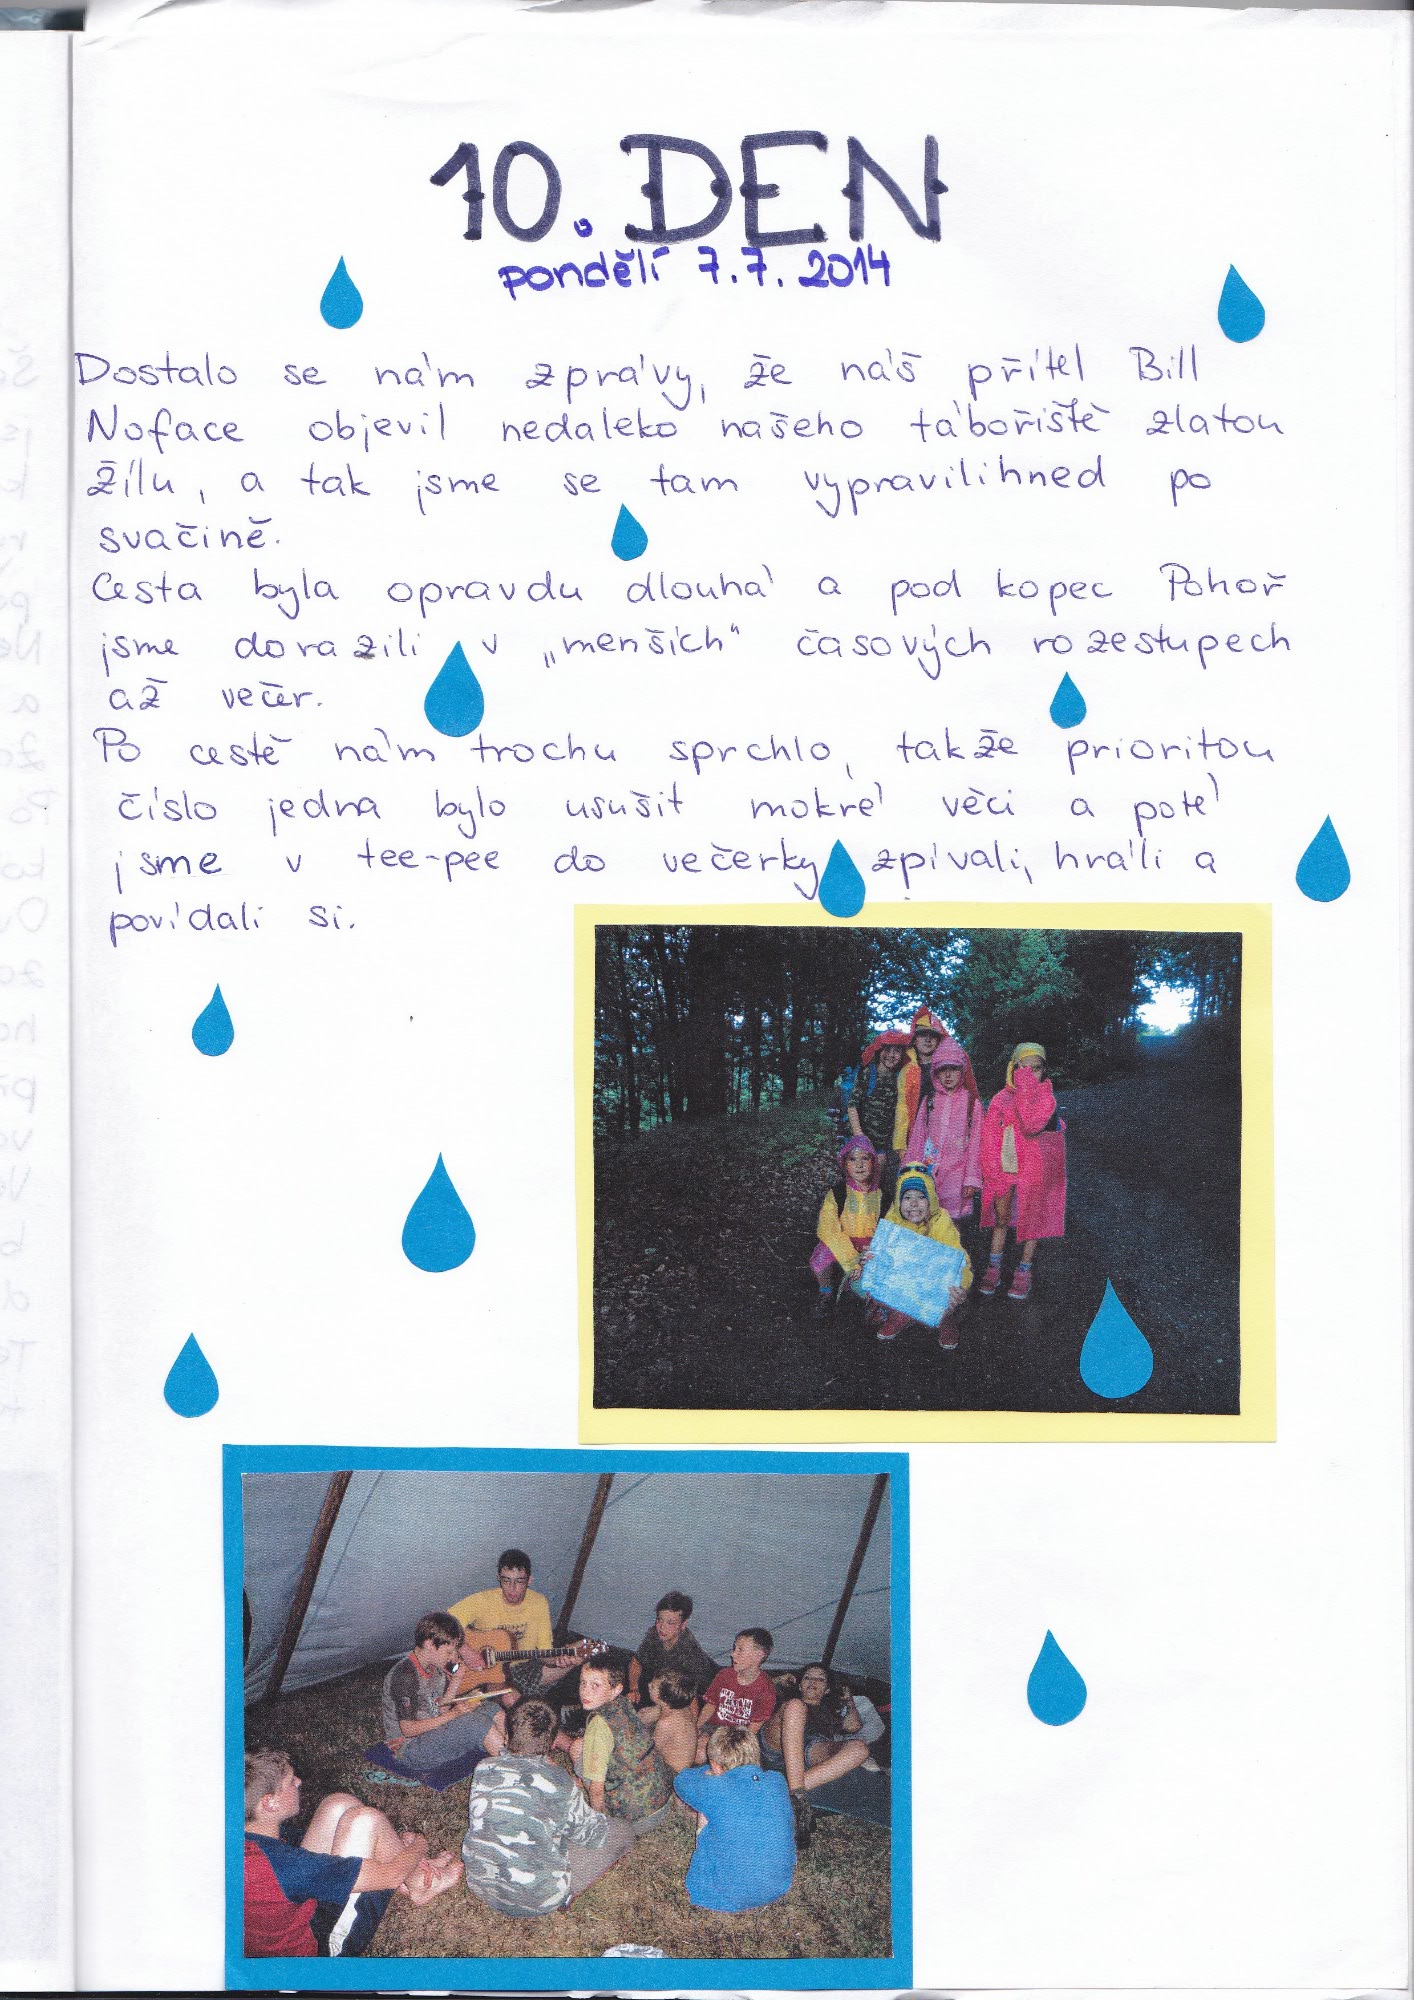 10. DEN
pondělí 7.7. 2014
Dostalo se nám zprávy, že náš přítel Bill
Noface objevil nedaleko našeho tábořiště zlatou
žílu, a tak jsme se tam vypravili hned po
svačině.
Cesta byla opravdu dlouhá a pod kopec Pohoř
jsme dorazili v „menších“ časových rozestupech
až večer.
Po cestě nám trochu sprchlo, takže prioritou
číslo jedna bylo usušit mokré věci a poté
jsme v tee-pee do večerky zpívali, hráli a
povídali si.